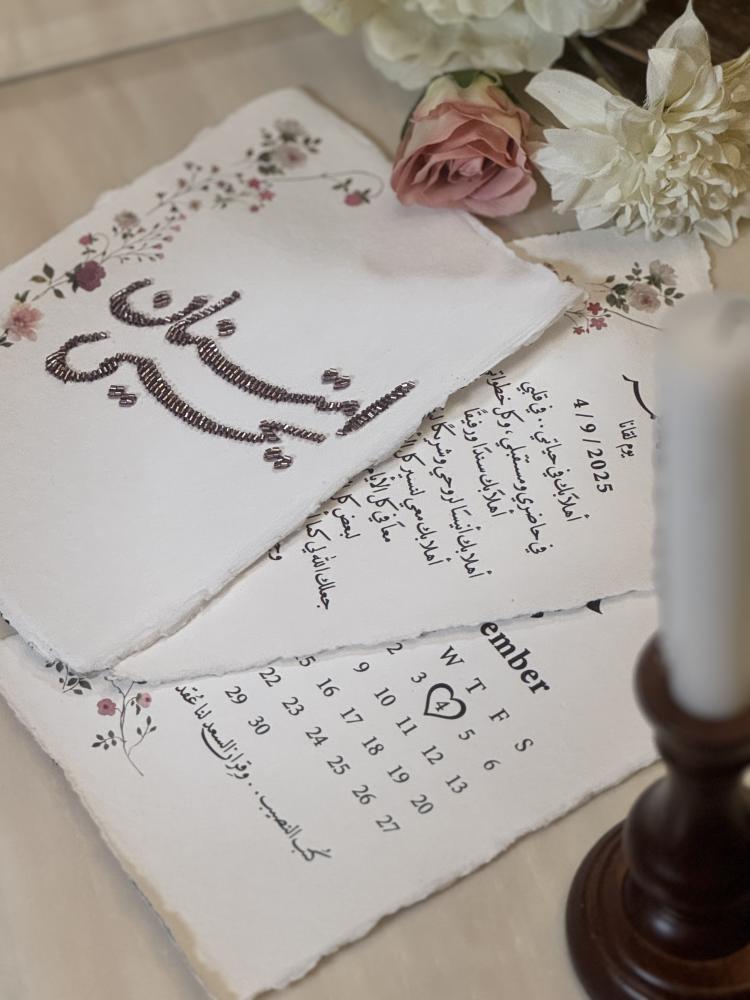 امتنان
يوم لقانا
4/9/2025
أهلا بك في حياتي .. في قلبي
في حاضري ومستقبلي ، وكل
أهلا بك سندًا ورفيقًا
أهلا بك أنيسًا لروحي وشريكًا
أهلا بك معي لنسير كل
معا في كل الأيام
لبعض كل
جعلك الله لي كما
ember
W T F S
2 3 4 5 6
9 10 11 12 13
5 16 17 18 19 20
22 23 24 25 26 27
29 30
كُتب النصيب .. وقرار السعد لنا عُقد